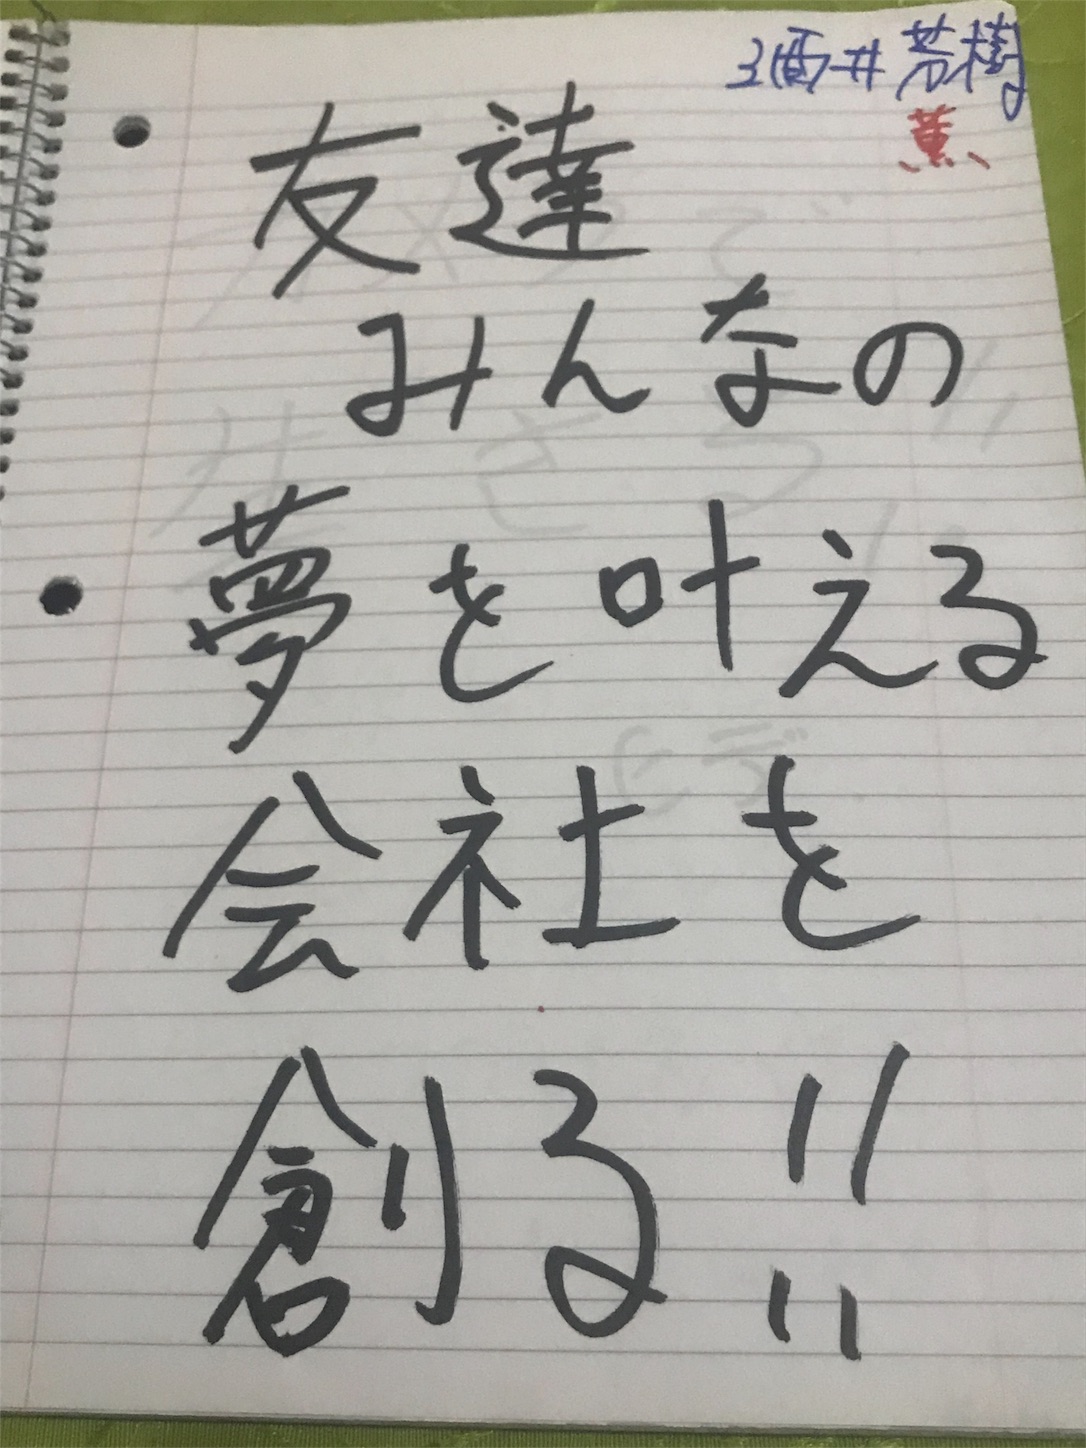 酒井 芳樹
薫
友達
みんなの
夢を叶える
会社を
創る!!